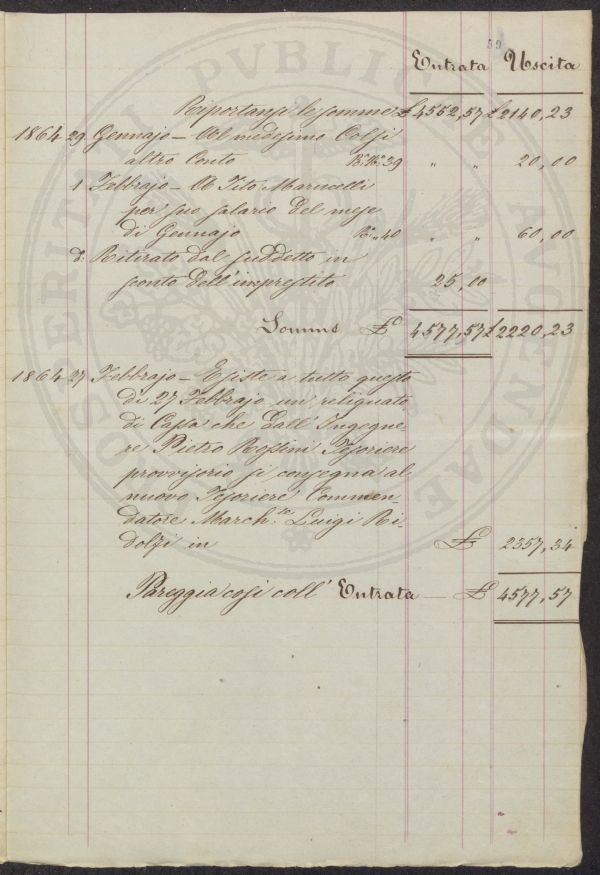 59
Entrata Uscita
Riportansi le somme £ 4552,57 £ 2140,23
1864 29 Gennajo — Al medesimo Dolfi
altro Conto R.ª N.º 39 „ „ 20,00
1 Febbrajo — A Tito Marucelli
per suo salario del mese
di Gennajo R.ª „ 40 „ „ 60,00
d. Ritirato dal suddetto in
sconto dell'imprestito 25,00
Somme £ 4577,57 £ 2220,23
1864 27 Febbrajo — Esiste a tutto questo
dì 27 Febbrajo un reliquato
di Cassa che dall'Ingegne
re Pietro Rossini Tesoriere
provvisorio si consegna al
nuovo Tesoriere Commen-
datore March.se Luigi Ri-
dolfi in £ 2357,34
Pareggia così coll' Entrata — £ 4577,57
PROSPERITATI PVBLICAE AVGENDAE